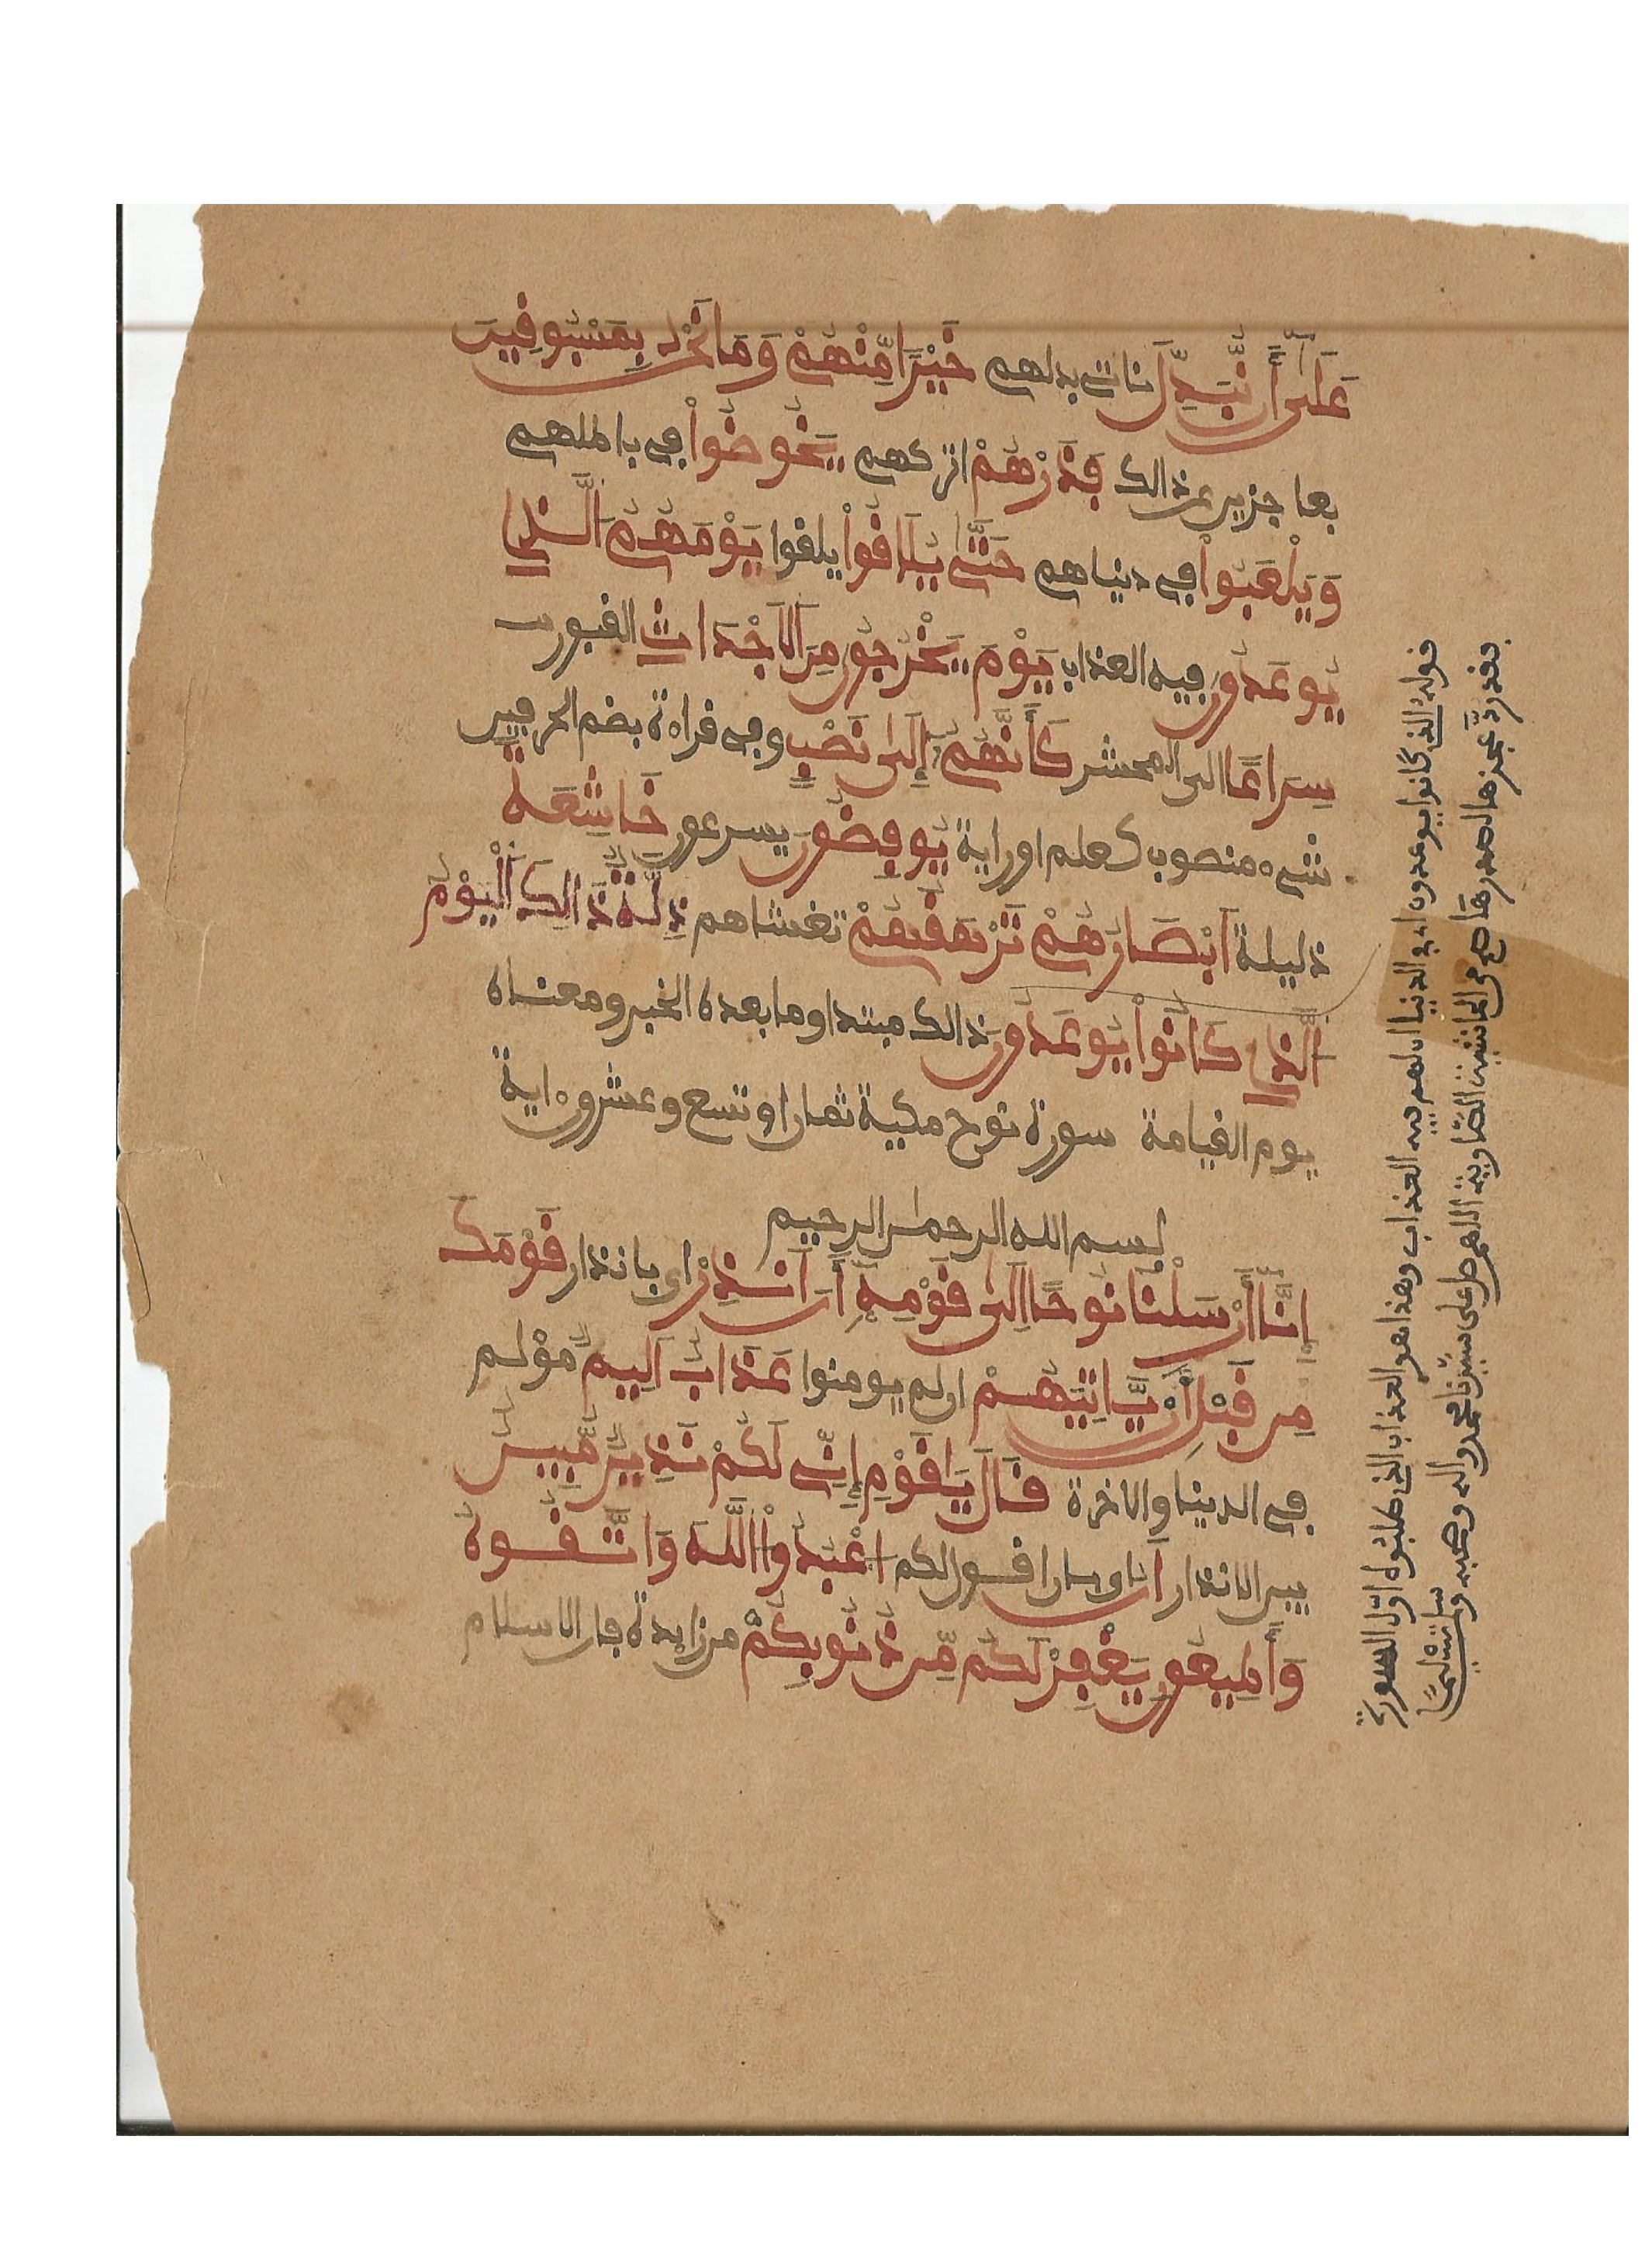 عَلَىٰ أَن نُّبَدِّلَ نات بدلهم خَيْرًا مِّنْهُمْ وَمَا نَحْنُ بِمَسْبُوقِينَ
بعاجزين عن ذالك فَذَرْهُمْ اتركهم يَخُوضُوا في باطلهم
وَيَلْعَبُوا في دنياهم حَتَّىٰ يُلَاقُوا يلقوا يَوْمَهُمُ الَّذِي
يُوعَدُونَ فيه العذاب يَوْمَ يَخْرُجُونَ مِنَ الْأَجْدَاثِ القبور
سِرَاعًا الى المحشر كَأَنَّهُمُ إِلَىٰ نَصْبٍ وفي قراءة بضم الحرفين
شيء منصوب كعلم او راية يُوفِضُونَ يسرعون خَاشِعَةً
ذليلة أَبْصَارُهُمْ تَرْهَقُهُمْ تغشاهم ذِلَّةٌ ذَالِكَ الْيَوْمُ
الَّذِي كَانُوا يُوعَدُونَ ذالك مبتدا وما بعده الخبر ومعناه
يوم القيامة سورة نوح مكية ثمان او تسع وعشرون ءاية
بسم الله الرحمن الرحيم
إِنَّا أَرْسَلْنَا نُوحًا إِلَىٰ قَوْمِهِ أَنْ أَنذِرْ اي بانذار قَوْمَكَ
مِن قَبْلِ أَن يَّاتِيَهُمْ ان لم يومنوا عَذَابٌ أَلِيمٌ مؤلم
في الدنيا والاخرة قَالَ يَا قَوْمِ إِنِّي لَكُمْ نَذِيرٌ مُّبِينٌ
بين الانذار أَنُ اي بان اقول لكم اعْبُدُوا اللَّهَ وَاتَّقُوهُ
وَأَطِيعُونِ يَغْفِرْ لَكُم مِّن ذُنُوبِكُمْ من زايدة فان الاسلام
قوله الذي كانوا يوعدون اي في الدنيا ان لهم فيه العذاب وهذا هو العذاب الذي طلبوه اول السورة
فقد ردّ عجزها لصدرها من الحاشية الصاوية اللهم صل على سيدنا محمد واله وصحبه وسلم تسليما